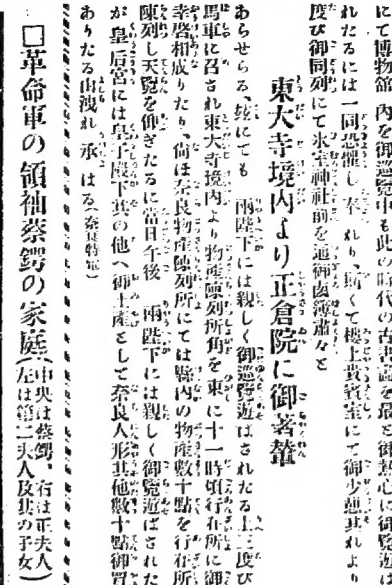 にて博物館内を御巡覧中も此の時代の古書謚を最と御熱心に御覧遊
れたるには一同恐懼し奉れり、斯くて楼上貴賓室にて御少憩其れより
度び御同列にて氷室神社前を通御鹵簿粛々と
東大寺境内より正倉院に御著輦
あらせらる、玆にても 両陛下には親しく御巡覧遊ばされたる上三度び
馬車に召され東大寺境内より物産陳列所角を東に十一時頃行在所に御
幸啓相成りたり、尚ほ奈良物産陳列所にては縣内の物産數十點を行在所
陳列し天覧を仰ぎたるに當日午後 両陛下には親しく御覧遊ばされた
が 皇后宮には皇子殿下其の他へ御土産として奈良人形其他數十點御買
ありたる由洩れ承はる(奈良特電)
□革命軍の領袖蔡鍔の家庭(中央は蔡鍔、右は正夫人
左は第二夫人及其の子女)